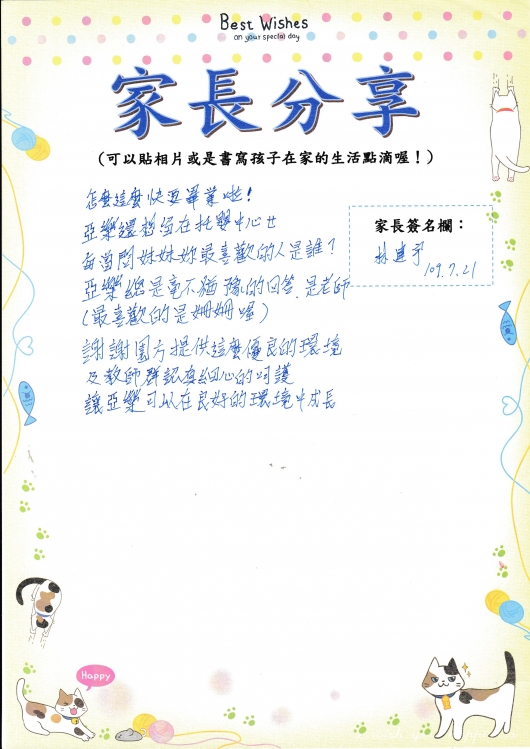 Best Wishes
on your special day
家長分享
(可以貼相片或是書寫孩子在家的生活點滴喔！)
怎麼這麼快要畢業啦！
亞樂還想留在托嬰中心ㄝ
每當問妹妹妳最喜歡的人是誰？
亞樂總是毫不猶豫的回答.是老師
(最喜歡的是姍姍喔)
謝謝園方提供這麼優良的環境
及教師群認真細心的呵護
讓亞樂可以在良好的環境中成長
家長簽名欄：
林建
109.7.21
Happy